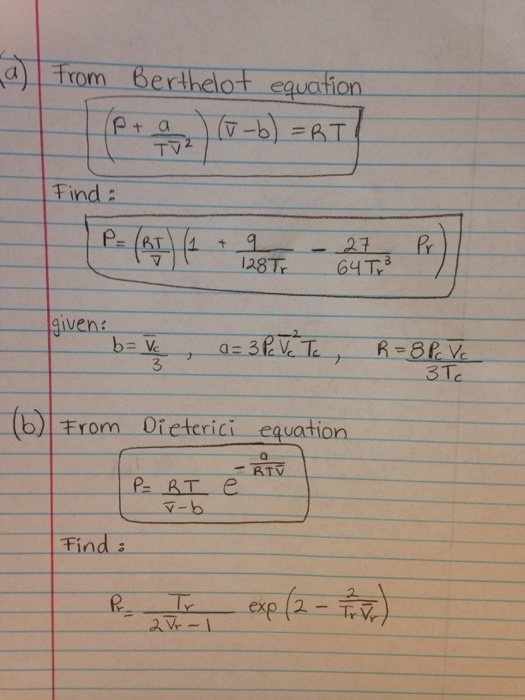 (a) From Berthelot equation
(P + a/TV̄²) (V̄-b) = RT
Find:
P= (RT/V̄) (1 + 9/128Tr - 27/64Tr³ Pr)
given:
b= V̄c/3 , a= 3PcV̄c²Tc , R = 8PcV̄c/3Tc
(b) From Dieterici equation
P= RT/(V̄-b) e^(-a/RTV̄)
Find:
Pr= Tr/(2V̄r-1) exp (2 - 2/TrV̄r)